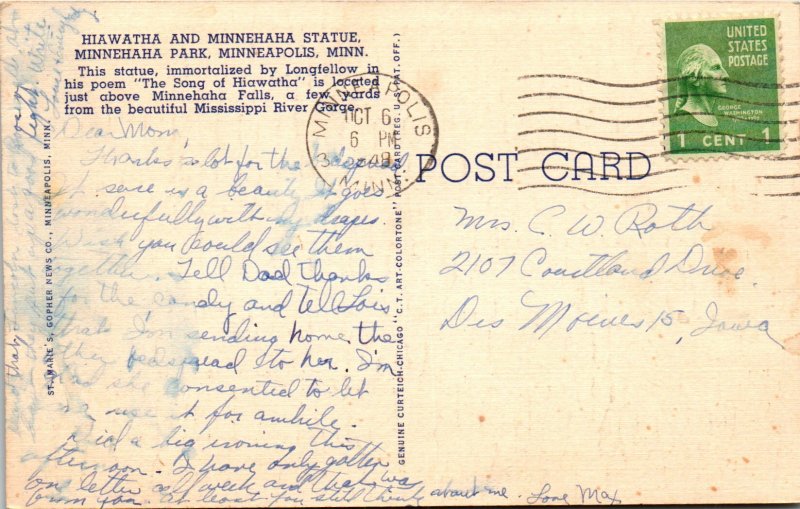 HIAWATHA AND MINNEHAHA STATUE,
MINNEHAHA PARK, MINNEAPOLIS, MINN.
This statue, immortalized by Longfellow in
his poem "The Song of Hiawatha" is located
just above Minnehaha Falls, a few yards
from the beautiful Mississippi River Gorge.
Dear Mom,
Thanks a lot for the bedspread
It sure is a beauty. It goes
wonderfully with my drapes.
Wish you could see them
together. Tell Dad thanks
for the candy and tell Lois
that I'm sending home the
other bedspread to her. I'm
glad she consented to let
me use it for awhile.
Did a big ironing this
afternoon. I have only gotten
one letter all week and that was
from you. At least you still think about me. Love Max
Write
ST. MARIE'S GOPHER NEWS CO., MINNEAPOLIS, MINN.
GENUINE CURTEICH-CHICAGO "C.T. ART-COLORTONE" POST CARD (REG. U.S. PAT. OFF.)
MINNEAPOLIS
OCT 6
6 PM
MINN.
POST CARD
UNITED
STATES
POSTAGE
GEORGE
WASHINGTON
1 CENT 1
Mrs. C. W. Roth
2107 Courtland Drive
Des Moines 15, Iowa